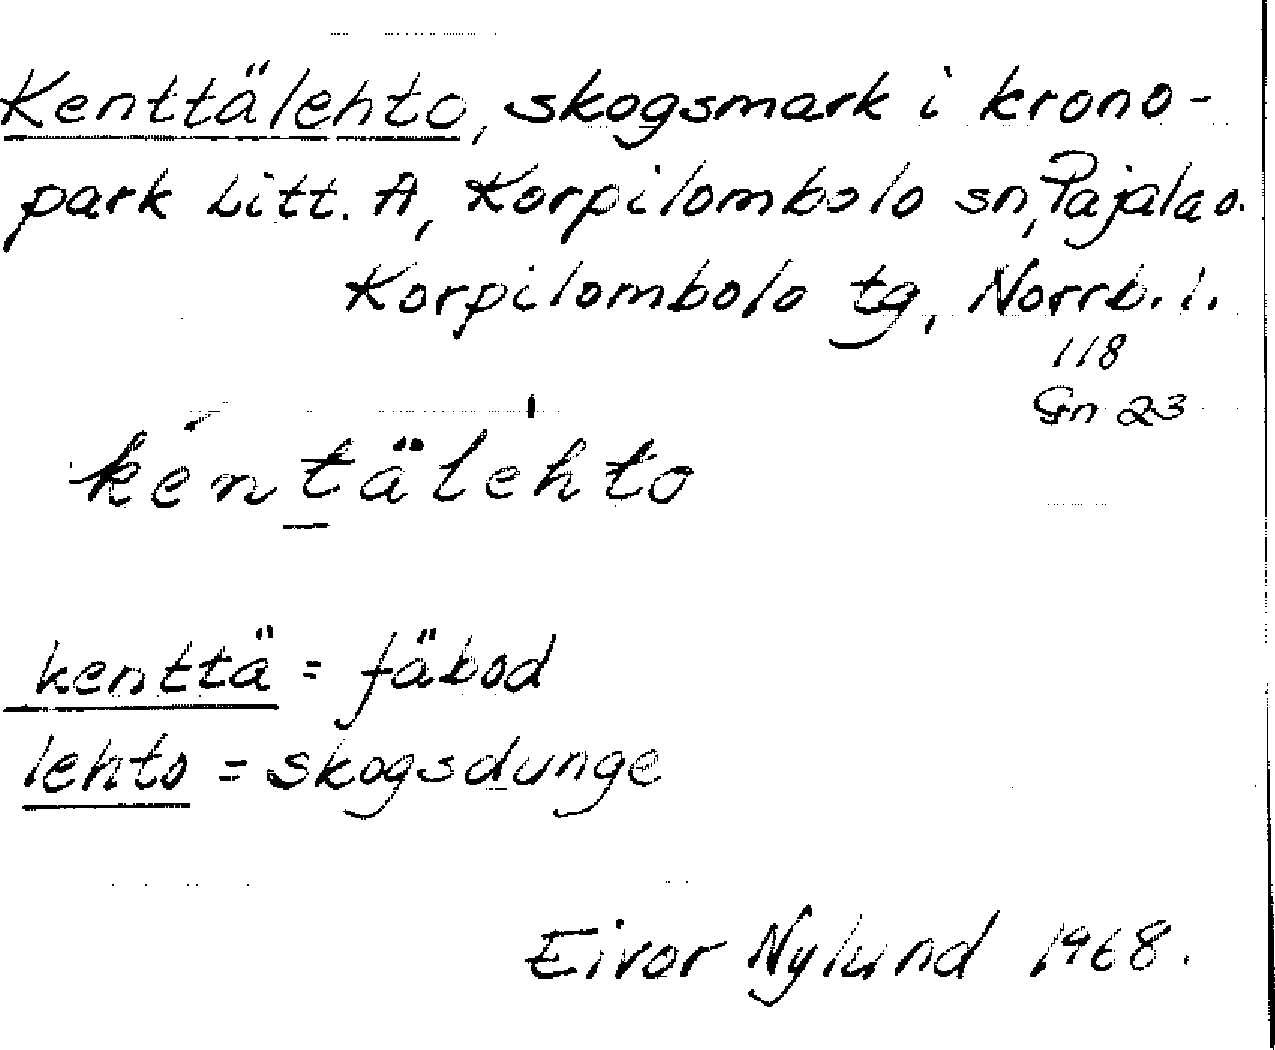 Kenttälehto, skogsmark i krono-
park Litt. A, Korpilombolo sn, Pajala o.
Korpilombolo tg, Norrb. l.
118
Gn 23
kéntälèhto
kenttä = fäbod
lehto = skogsdunge
Eivor Nylund 1968.